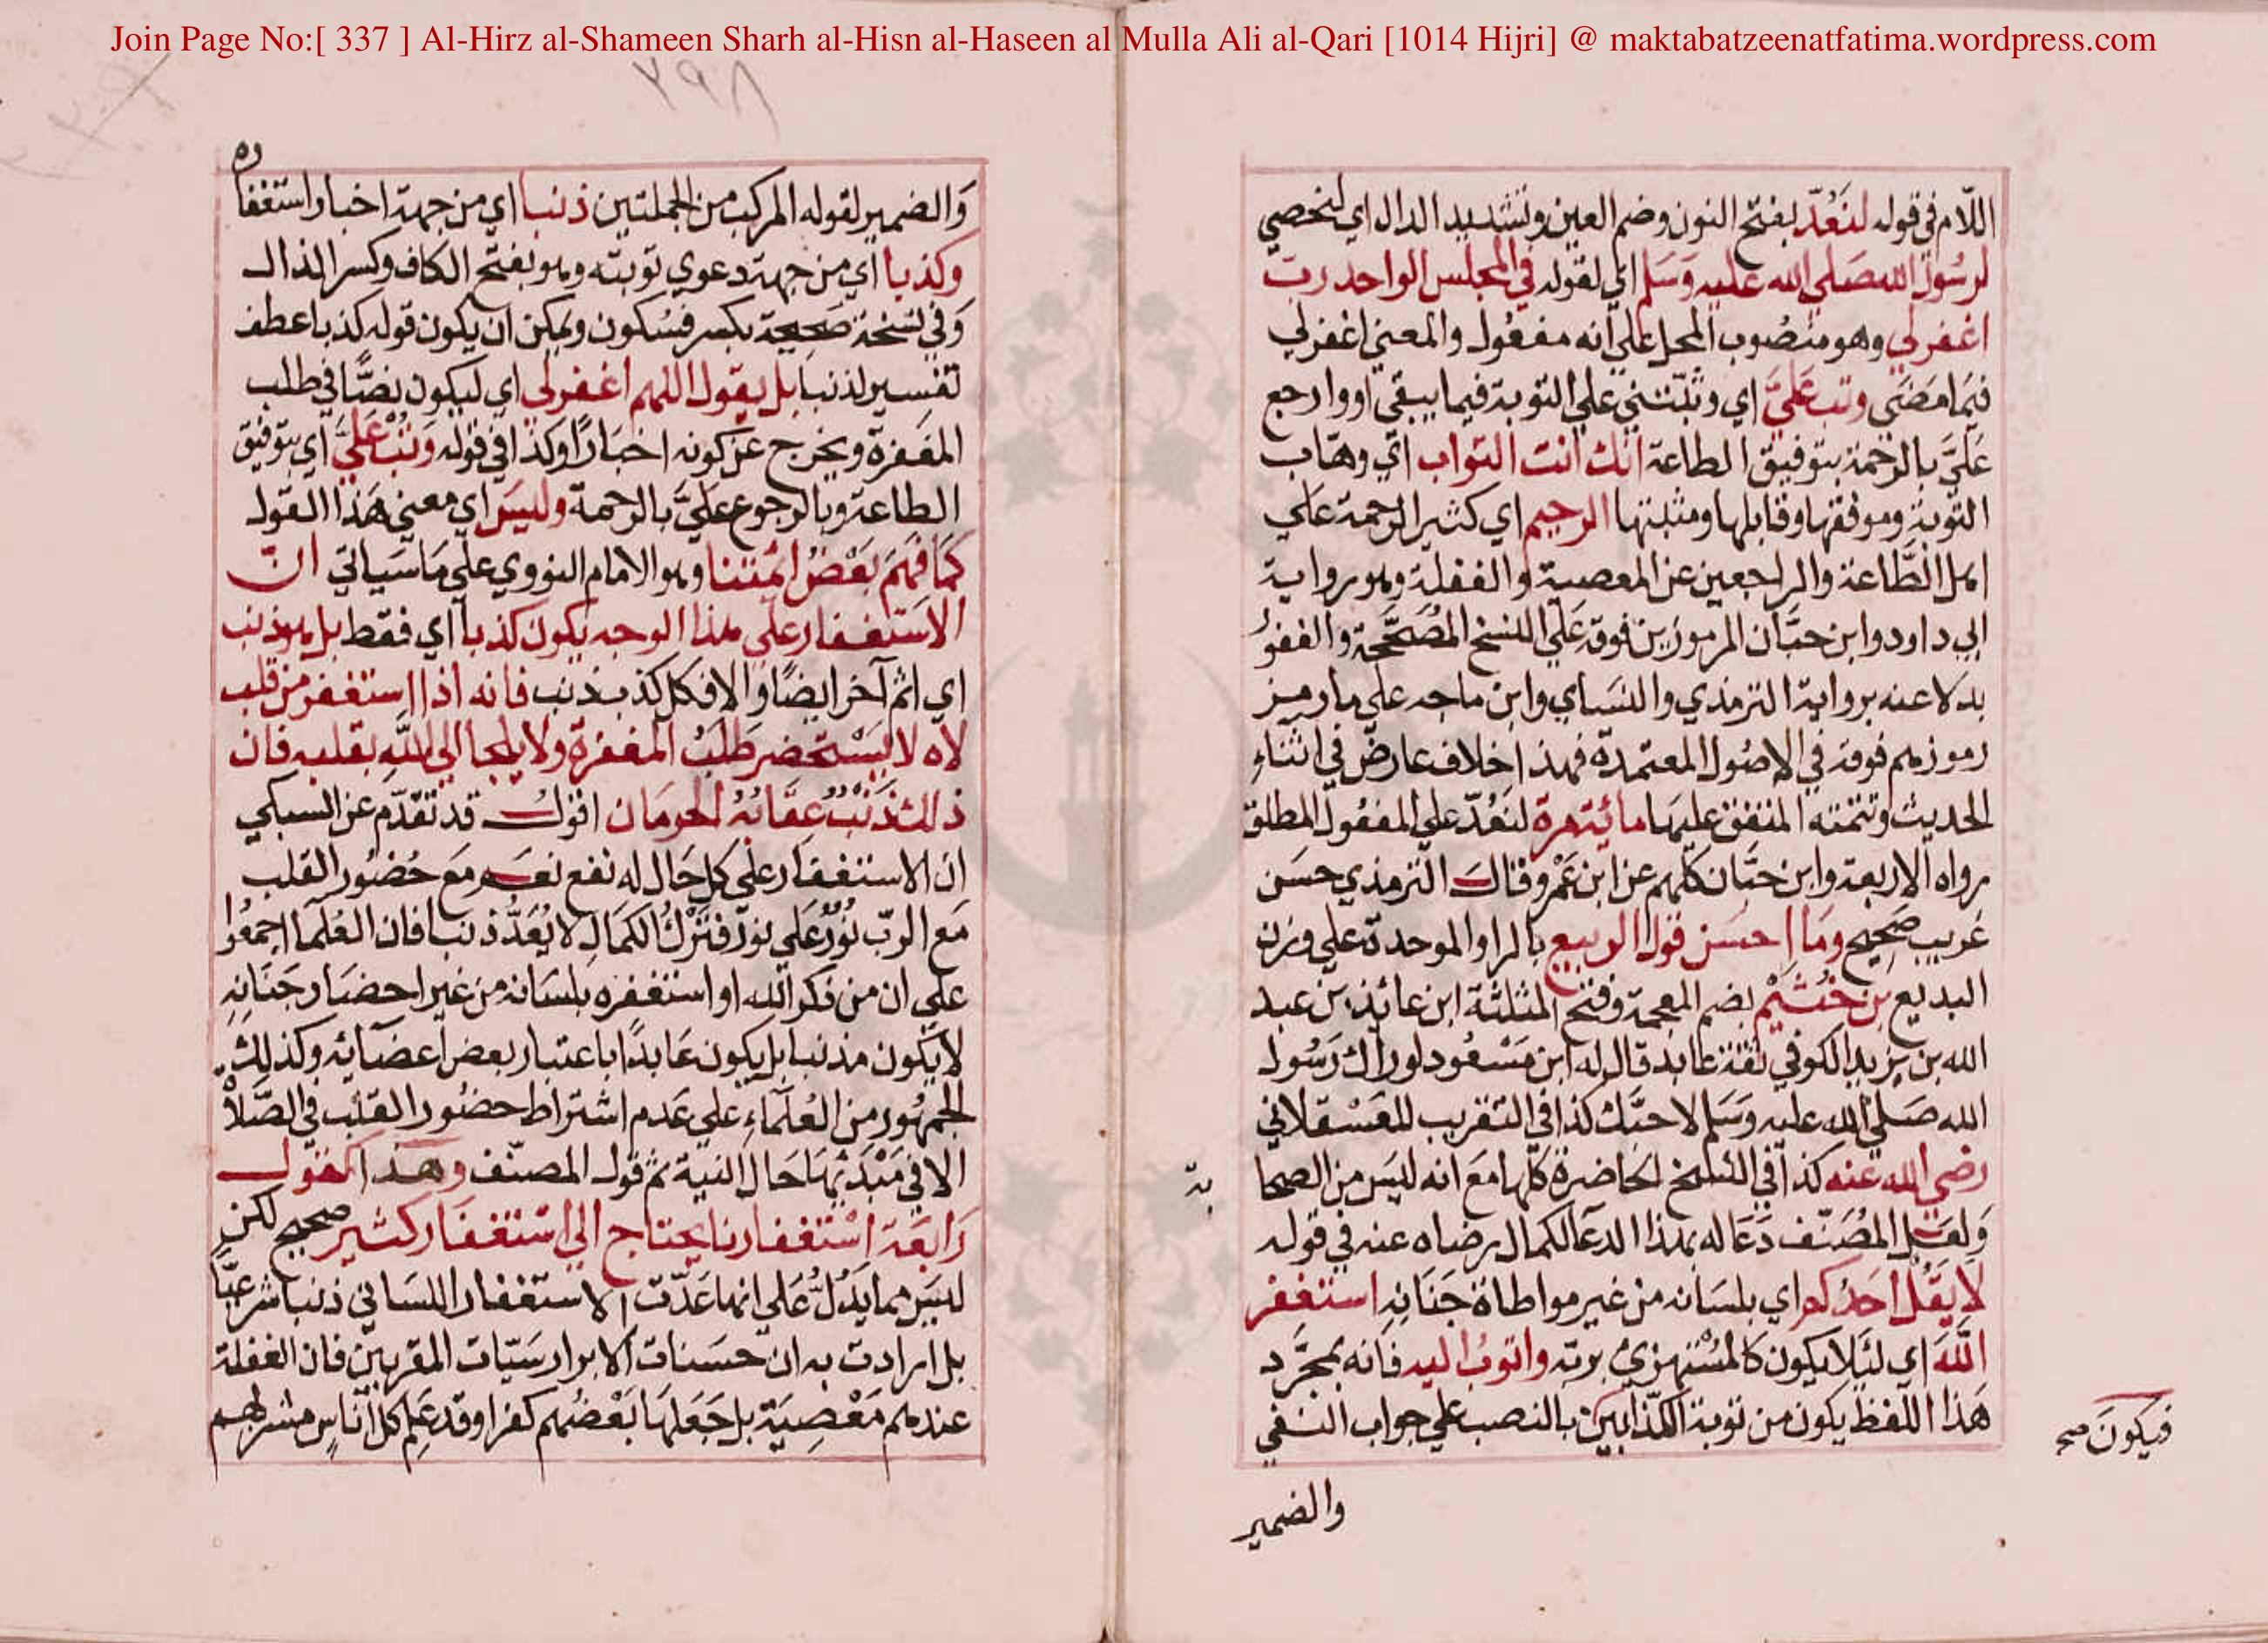 Join Page No:[ 337 ] Al-Hirz al-Shameen Sharh al-Hisn al-Haseen al Mulla Ali al-Qari [1014 Hijri] @ maktabatzeenatfatima.wordpress.com
اللّام في قوله لنَعُدّ بفتح النون وضم العين وتشديد الدال اي لنحصي
لرسُول الله صَلي الله عليه وَسَلم اي لقوله في المجلس الواحد رب
اغفر لي وهو منصُوب المحل علي انه مفعُول والمعني اغفر لي
فيمَا مَضَي وتب عَليَّ اي وثبّتني علي التوبة فيما يبقي او وارجع
عَليَّ بالرحمة بتوفيق الطاعة انك انت التواب اي وهّاب
التوبة وموفقها وقابلها ومثبتها الرحيم اي كثير الرحمة علي
اهل الطَّاعة والراجعين عن المعصية والغفلة وهو رواية
ابي داود وابن حبَّان المرموزين فوقه عَلي النسخ المُصَحَّحة والغفوُ
بدلا عنه برواية الترمذي والنسَاي وابن ماجه علي ما رمز
رموزهم فوقه في الاصُول المعتمدة فهذا خلاف عارض في اثناءِ
الحديث وتتمته المتفق عليهَا مائة مرة لنَعُدّ علي المفعُول المطلق
رواه الاربعة وابن حبَّان كلهم عن ابن عَمْرو وقال الترمذي حسَن
غريب صَحِيح ومَا احسَن قول الربيع بالرا والموحدة علي وزن
البديع بن خُثَيْم بضم المعجمة وفتح المثلثة ابن عائذ بن عبد
الله بن يزيد الكوفي ثقة عابد قال له ابن مَسْعُود لو راك رَسُول
الله صَلي الله عليه وَسَلم لاحبَّك كذا في التقريب للعَسْقلاني
رضي الله عنه كذا في النسخ الحَاضرة كلها مَعَ انه ليَس من الصحا
بة
وَلعَل المُصَنّف دَعَا له بهذا الدعَا لكمال رضاه عنه في قوله
لَا يَقُل احَدُكم اي بلسَانه من غير مواطاة جَنَانِه استغفر
اللّهَ اي لئلا يكون كالمُسْتهزئ بربّه واتوبُ اليه فانه بمجرَّد
هَذا اللفظ يكون من توبة الكذّابين بالنصب علي جواب النفي
فيكونَ صح
والضمير
٢٩٨
وَالضمير لقوله المركب من الجملتين ذنبا اي من جهة اخبار استغفا
ره
وكذبا اي من جهة دعوي توبته وهو بفتح الكاف وكسر الذال
وَفي نسْخة صَحِيحة بكسر فسُكون ويمكن ان يكون قوله كذبا عطف
تفسير لذنبا بل يقول اللهم اغفر لي اي ليكون نصًّا في طلب
المغفرة ويخرج عن كونه اخبَارًا وكذا في قوله وَتُبْ عَليَّ اي بتوفيق
الطاعة وبالرجوع عَليَّ بالرحمة وليسَ اي معني هَذا القول
كمَا فَهِمَ بَعْضُ ائمتنا وهو الامام النووي علي مَا سَياتي انّ
الاسْتغفار علي هذا الوجه يكون كذبا اي فقط بل هو ذنب
اي اثم آخر ايضًا والا فكل كذب ذنب فانه اذا استغفر من قلب
لاه لا يَسْتحضر طَلَبُ المغفرة ولا يلجا الي اللّهِ بقلبه فان
ذلك ذنبٌ عِقَابُهُ الحرمَان اقول قد تقدّم عن السبكي
ان الاستغفَار علي كل حَال له نفع نعَم مَع حُضُور القلب
مَع الربّ نُوْرٌ عَلي نور فتَرْكُ الكمَالِ لا يُعَدُّ ذنبا فان العُلمَا اجمعُوا
علي ان من ذكر الله او استغفره بلسَانه من غير احضَار جَنَانِهِ
لا يَكون مذنبا بل يكون عَابدًا باعتبار بعض اعضَائه وكذلك
الجمهُور من العُلمَاءِ علي عَدم اشتراط حضُور القلب في الصَّلاة
الا في مَبْدَئهَا حَال النية ثم قول المصنّف وهذا كقول
رَابعَة اسْتغفارنا يحتاج الي اسْتغفَار كثير صحيح لكن
ليسَ مما يَدُلُّ عَلي انها عَدّت الاستغفار اللسَاني ذنبا شرعيًّا
بل ارادت به ان حسَنات الابرار سَيّات المقربين فان الغفلة
عندهم مَعْصِيَة بل جَعَلهَا بَعْضُهم كفرا وقد عَلِم كل اُنَاسٍ مشربهم